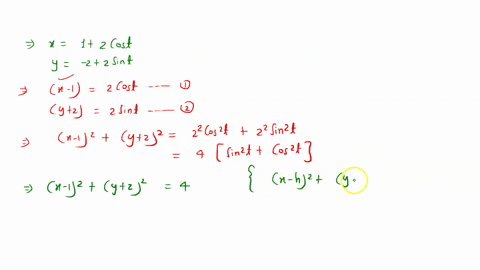 ⇒ x = 1 + 2 Cost
y = -2 + 2 Sint
⇒ (x-1) = 2 Cost ---- ①
(y+2) = 2 Sint ---- ②
⇒ (x-1)² + (y+2)² = 2² Cos²t + 2² Sin²t
= 4 [Sin²t + Cos²t]
⇒ (x-1)² + (y+2)² = 4 { (x-h)² + (y-